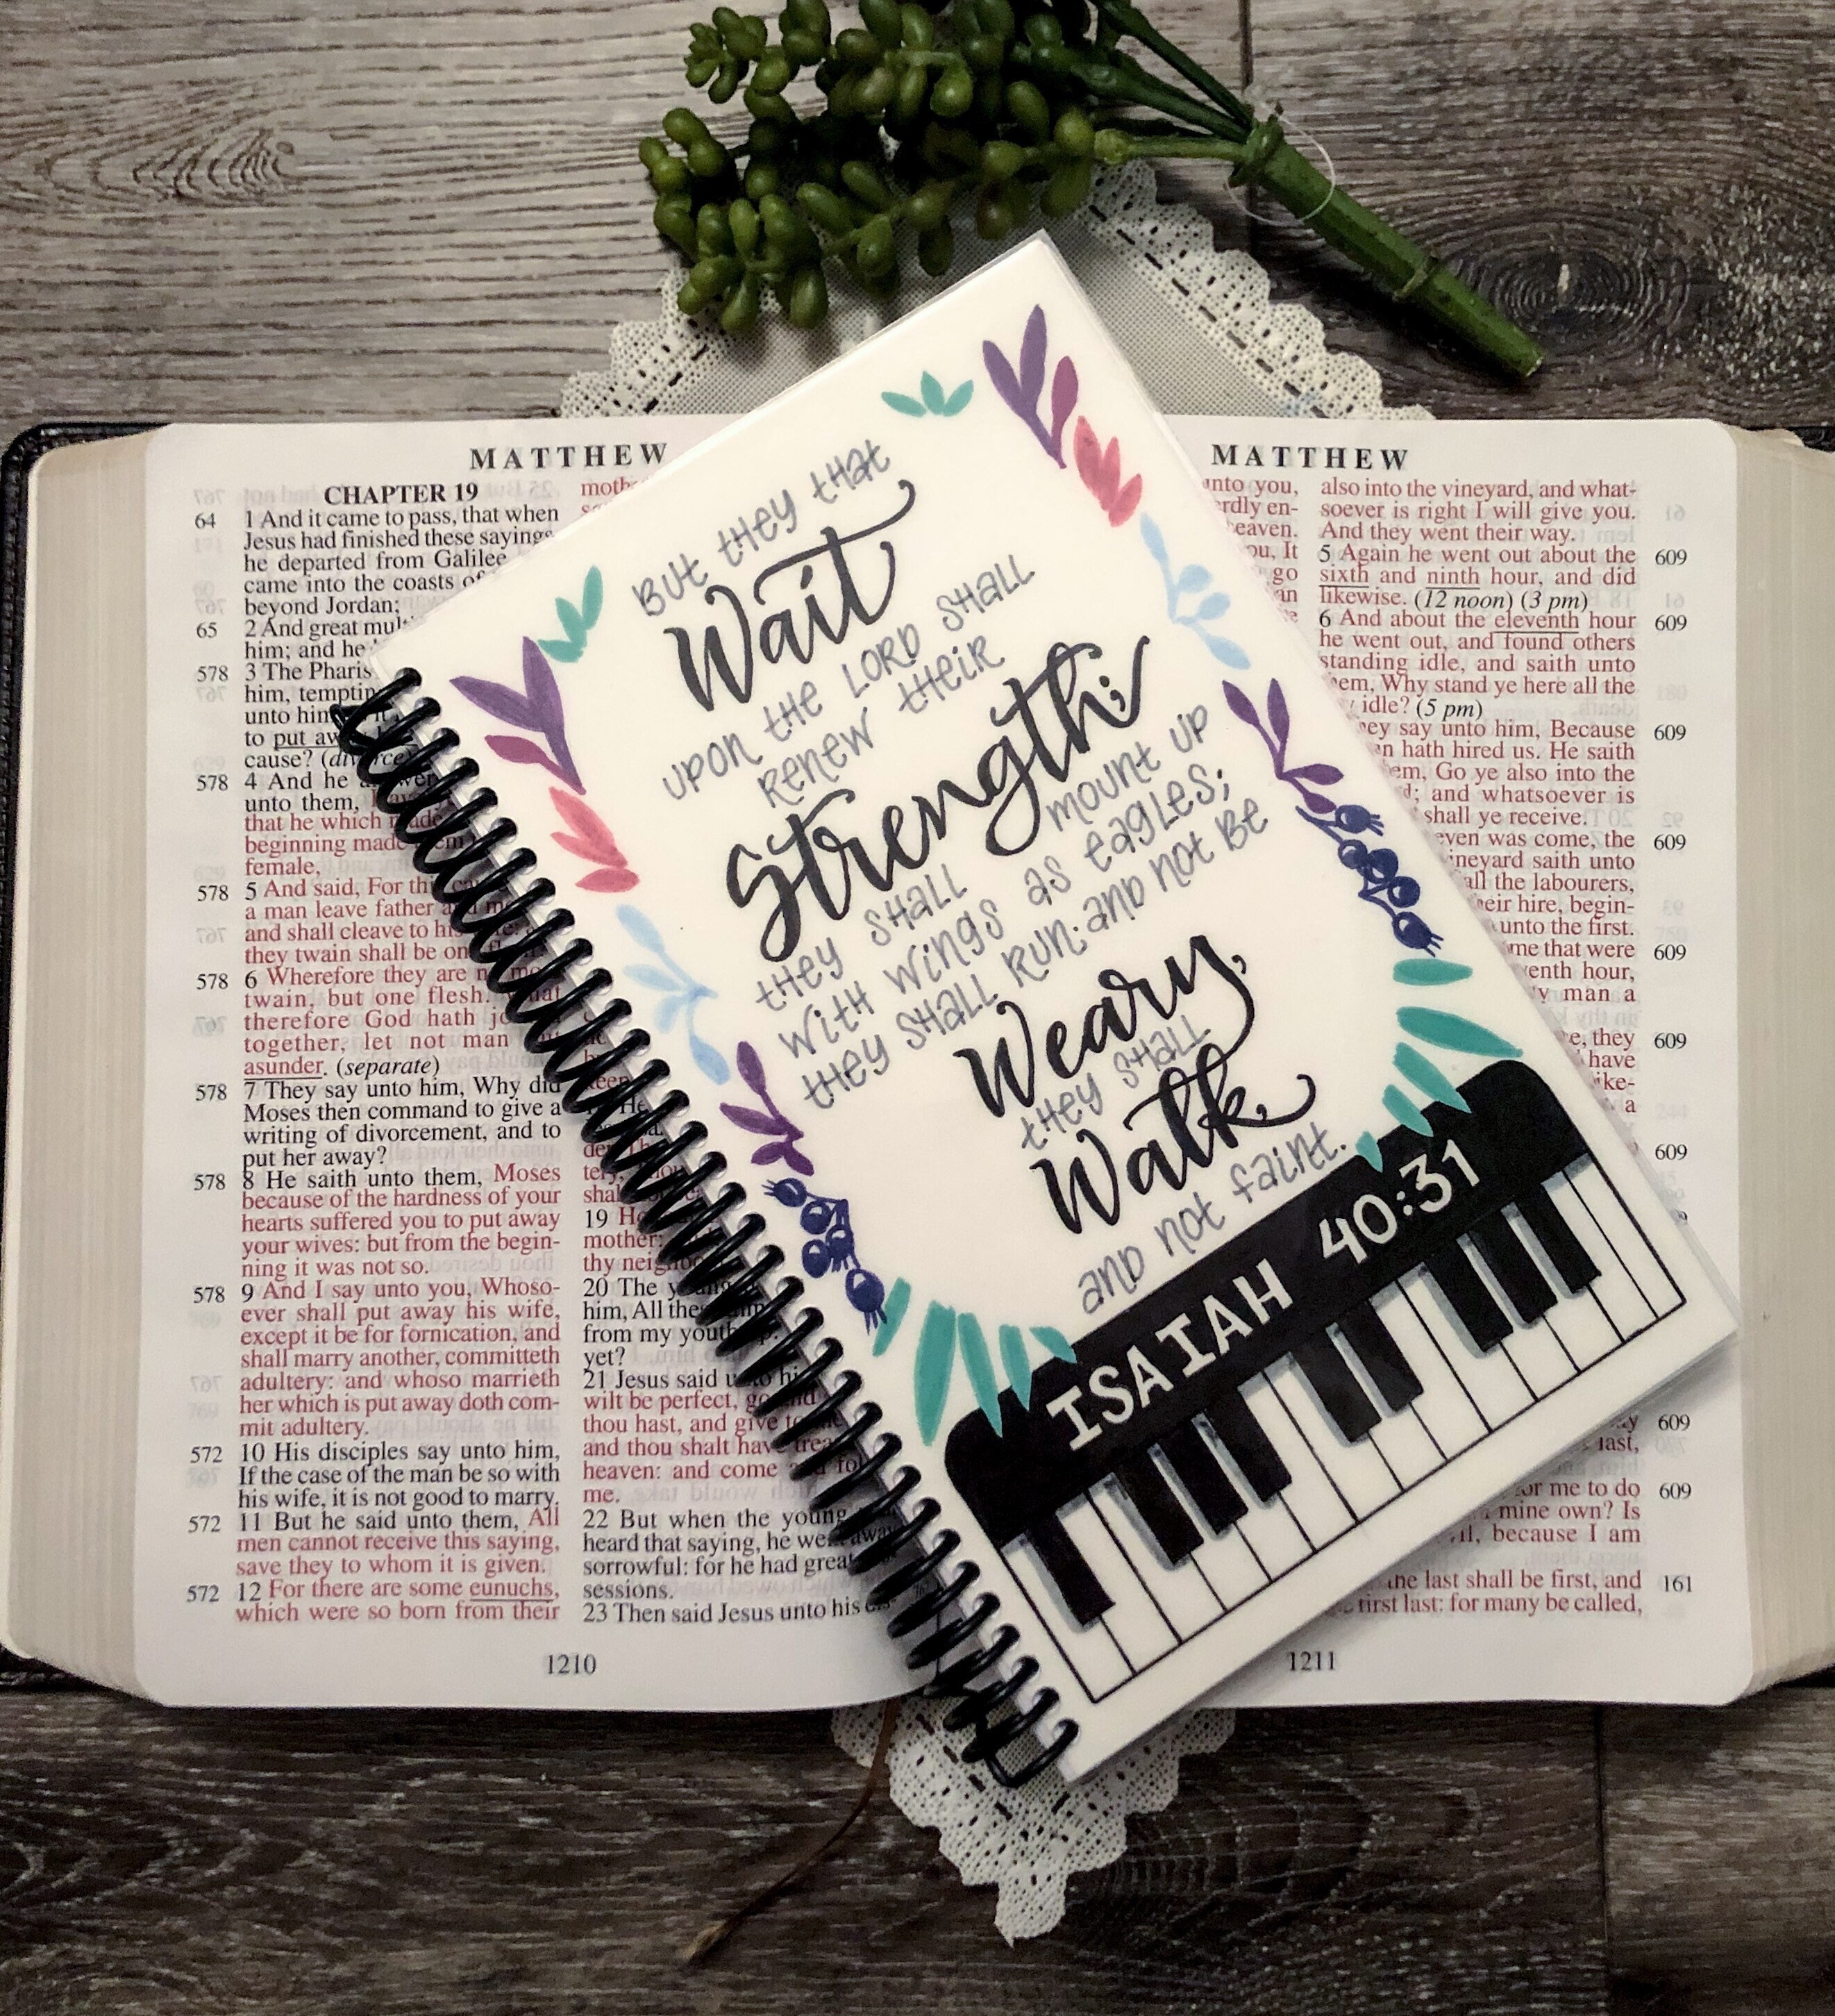 MATTHEW
CHAPTER 19
64 1 And it came to pass, that when
Jesus had finished these sayings
he departed from Galilee
came into the coasts of
beyond Jordan;
65 2 And great
him; and he
578 3 The
him,
unto him
to put
cause?
578 4 And he
unto them,
that he which made
beginning made them
female,
578 5 And said, For this
a man leave father and
and shall cleave to his
they twain shall be one
578 6 Wherefore they are no more
twain, but one flesh. What
therefore God hath
together, let not man
asunder. (separate)
578 7 They say unto him, Why did
Moses then command to give a
writing of divorcement, and to
put her away?
578 8 He saith unto them, Moses
because of the hardness of your
hearts suffered you to put away
your wives: but from the begin-
ning it was not so.
578 9 And I say unto you, Whoso-
ever shall put away his wife,
except it be for fornication, and
shall marry another, committeth
adultery: and whoso marrieth
her which is put away doth com-
mit adultery.
572 10 His disciples say unto him,
If the case of the man be so with
his wife, it is not good to marry.
572 11 But he said unto them, All
men cannot receive this saying,
save they to whom it is given.
572 12 For there are some eunuchs,
which were so born from their
19
mother:
thy
20 The
him, All these
from my youth
yet?
21 Jesus said unto him
wilt be perfect, go and
thou hast, and give to
and thou shalt have
heaven: and come and
me.
22 But when the young
heard that saying, he went away
sorrowful: for he had great
sessions.
23 Then said Jesus unto his
1210
But they that
Wait
upon the LORD shall
renew their
Strength;
they shall mount up
with wings as eagles;
they shall run; and not be
Weary,
they shall
Walk,
and not faint.
ISAIAH 40:31
MATTHEW
unto you,
heaven.
It
go
also into the vineyard, and what-
soever is right I will give you.
And they went their way.
5 Again he went out about the 609
sixth and ninth hour, and did
likewise. (12 noon) (3 pm)
6 And about the eleventh hour 609
he went out, and found others
standing idle, and saith unto
them, Why stand ye here all the
idle? (5 pm)
They say unto him, Because 609
hath hired us. He saith
them, Go ye also into the
and whatsoever is
shall ye receive.
even was come, the 609
vineyard saith unto
all the labourers,
their hire, begin-
unto the first.
that were 609
hour,
man a
they 609
have
a
609
609
last,
for me to do 609
mine own? Is
because I am
the last shall be first, and 161
first last: for many be called,
1211